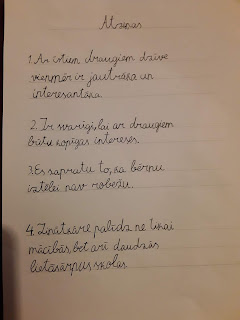 Atziņas
1. Ar citiem draugiem dzīve
vienmēr ir jautrāka un
interesantāka.
2. Ir svarīgi, lai ar draugiem
būtu kopīgas intereses.
3. Es sapratu to, ka bērnu
iztēlei nav robežu.
4. Zinātkāre palīdz ne tikai
mācībās, bet arī daudzās
lietās ārpus skolas.